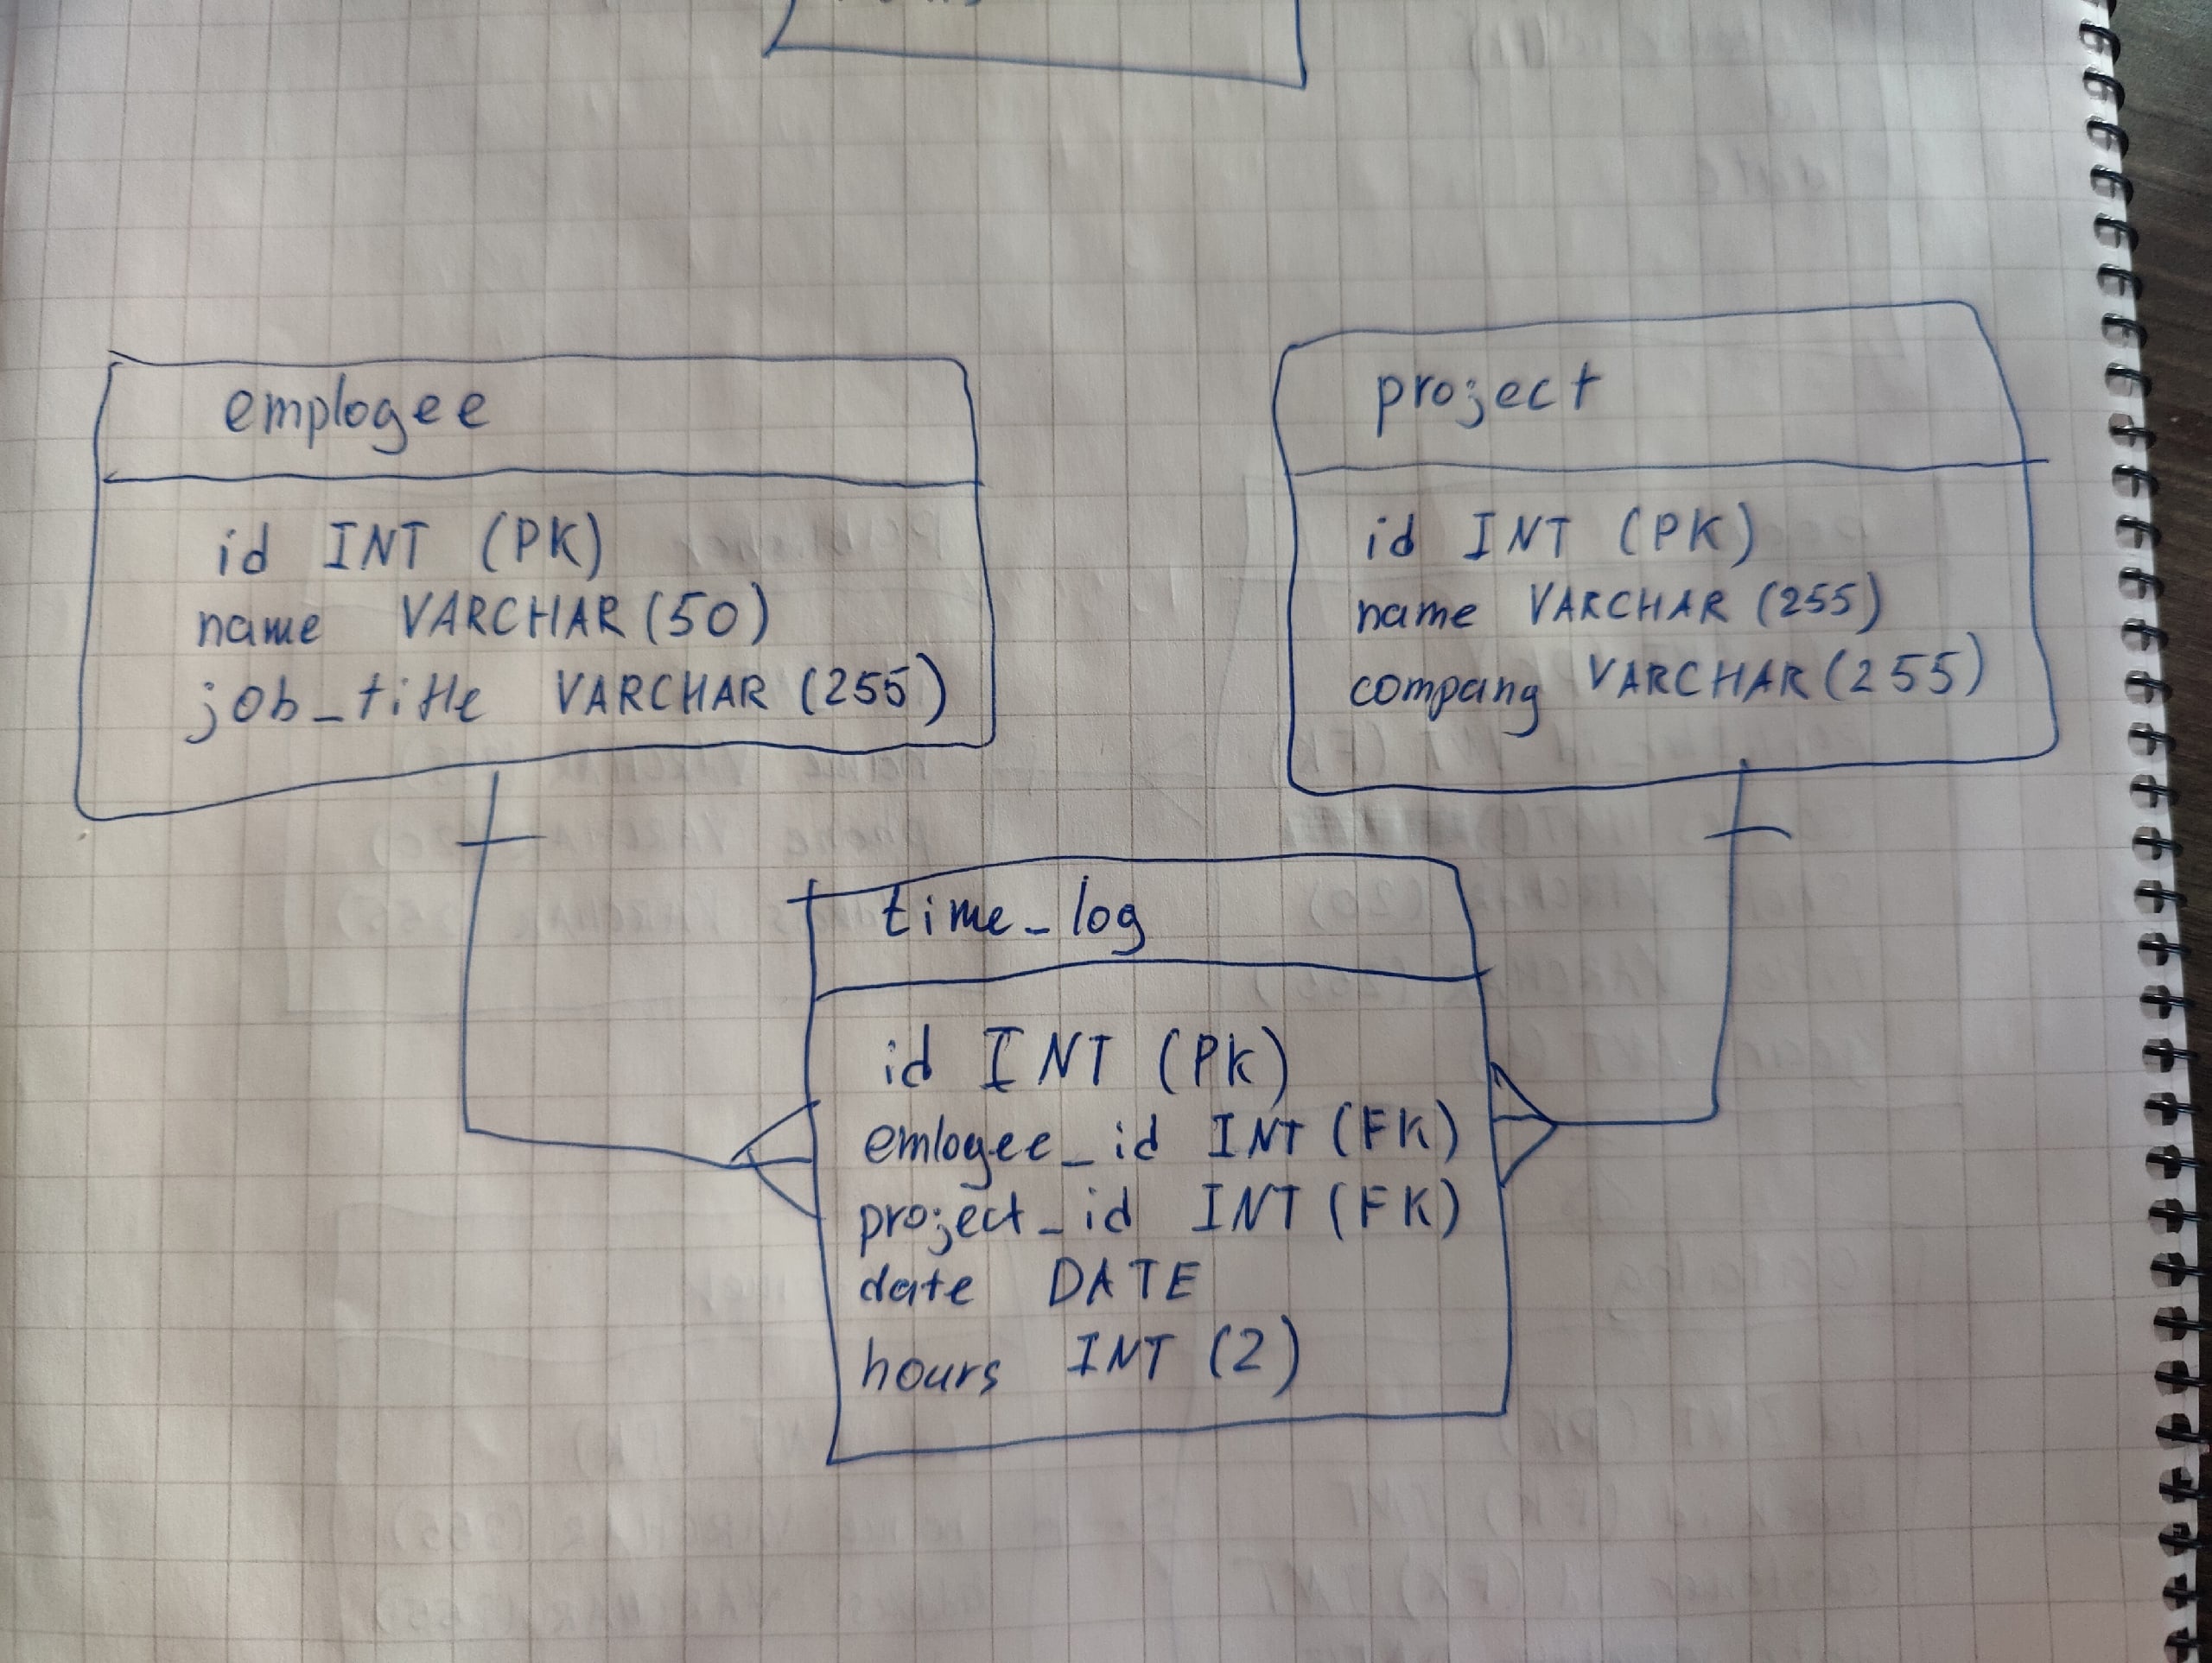 employee
id INT (PK)
name VARCHAR (50)
job_title VARCHAR (255)
project
id INT (PK)
name VARCHAR (255)
company VARCHAR (255)
time_log
id INT (PK)
emloyee_id INT (FK)
project_id INT (FK)
date DATE
hours INT (2)